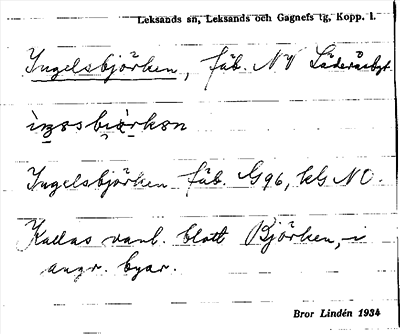 Leksands sn, Leksands och Gagnefs tg, Kopp. l.
Ingelsbjörken, fäb. NV Läderåsbgt
Ingelsbjörken fäb. G96, kG NO.
Kallas vanl. blott Björken, i
angr. byar.
Bror Lindén 1934